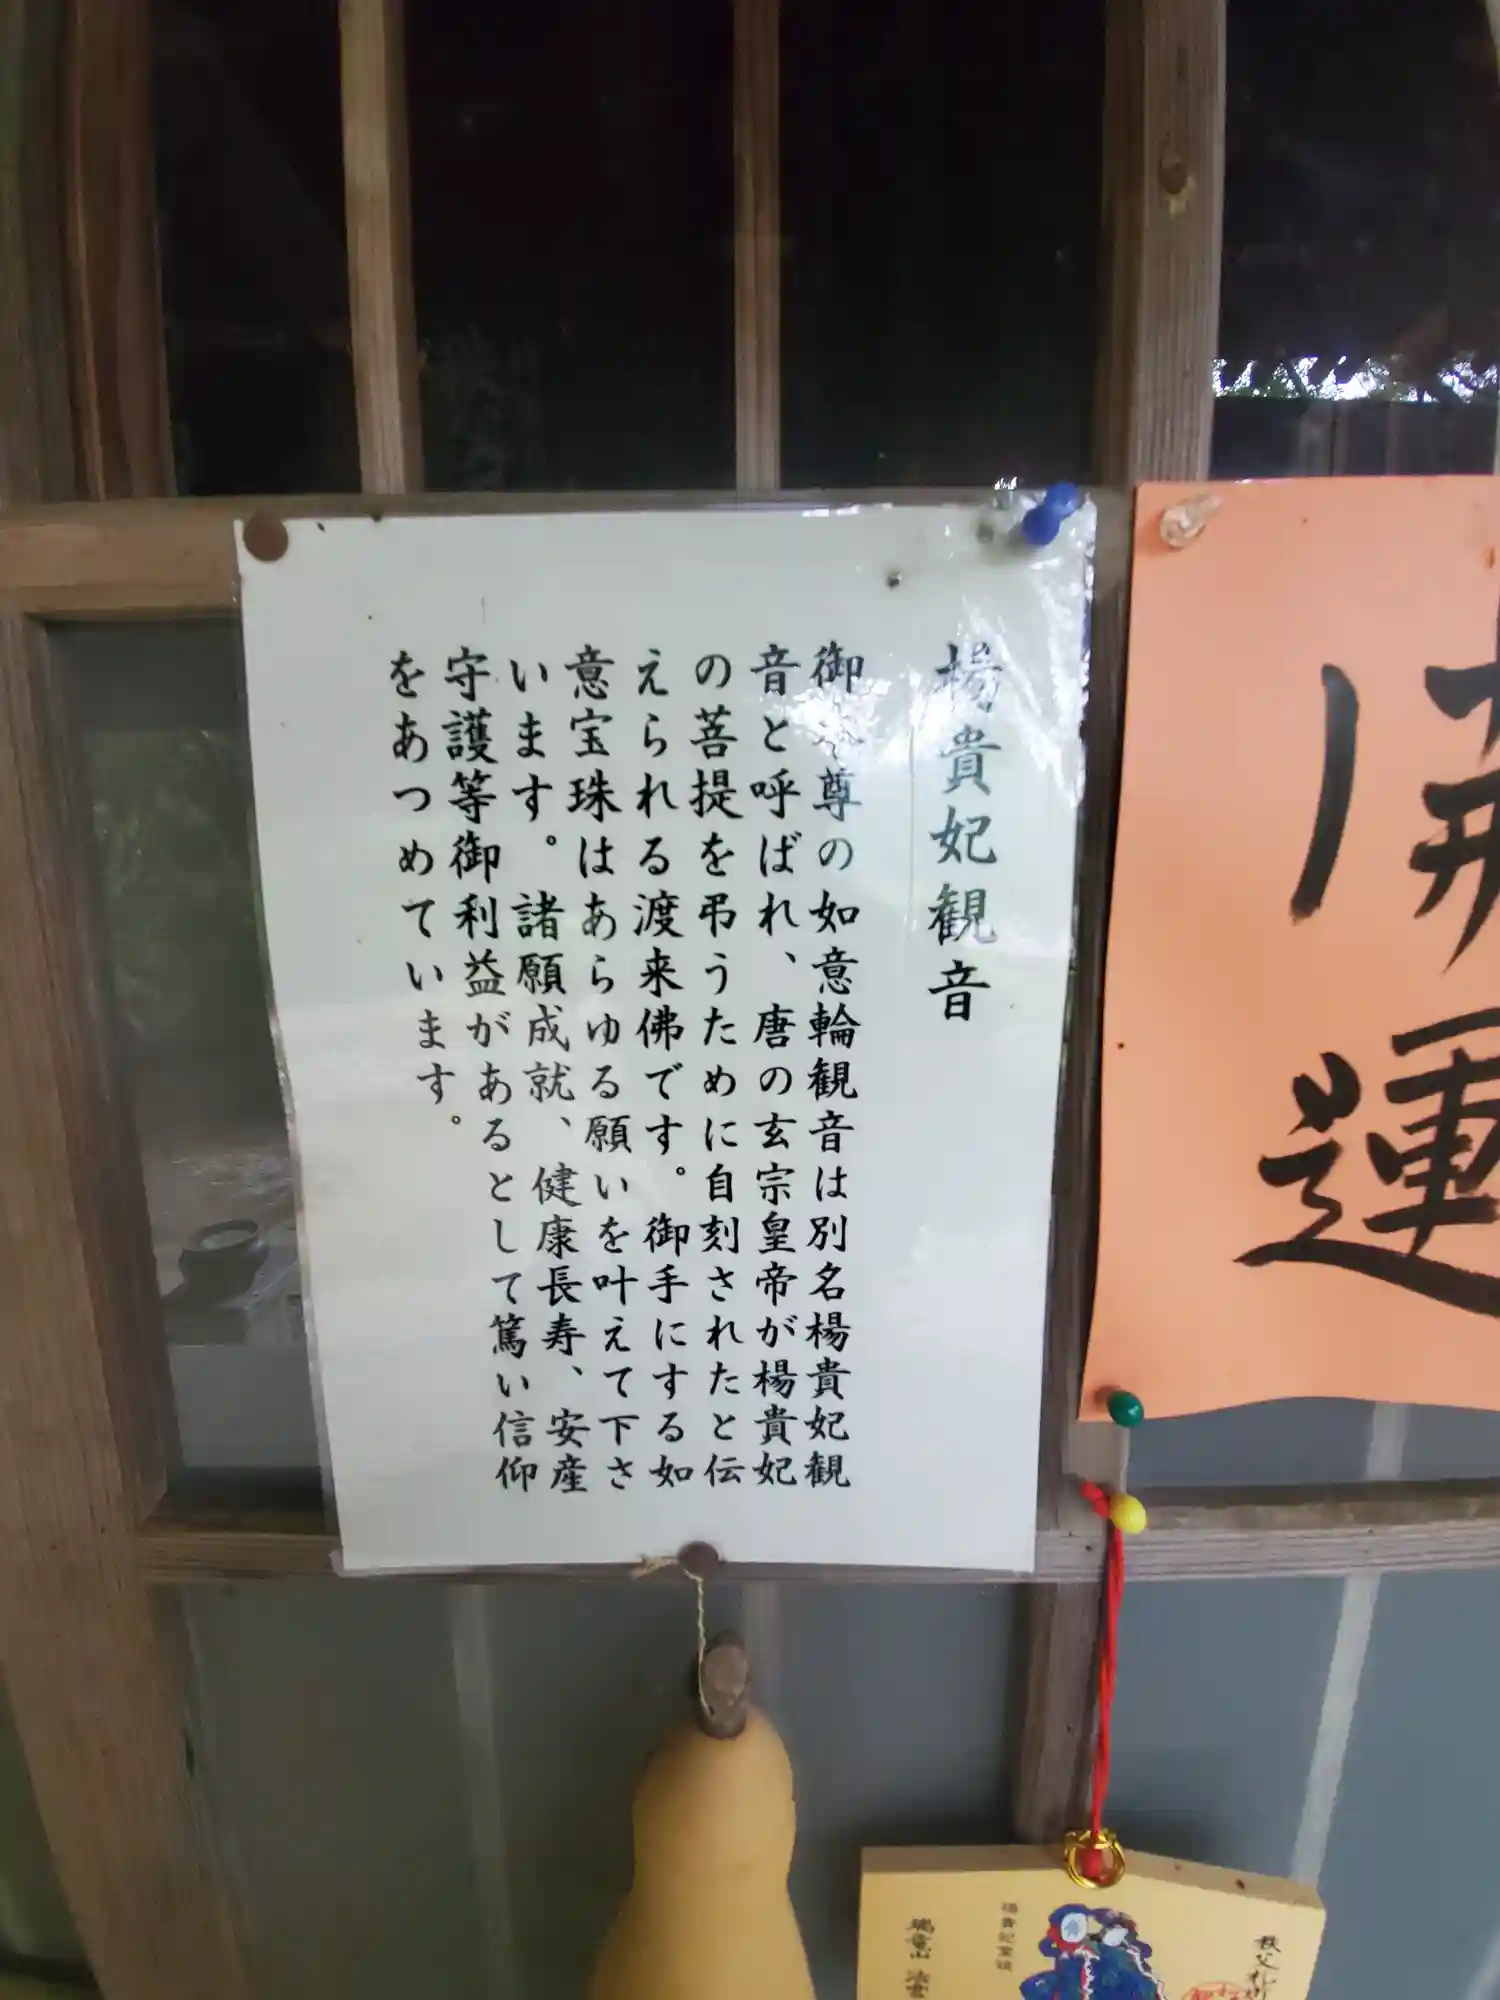 楊貴妃観音
御本尊の如意輪観音は別名楊貴妃観
音と呼ばれ、唐の玄宗皇帝が楊貴妃
の菩提を弔うために自刻されたと伝
えられる渡来佛です。御手にする如
意宝珠はあらゆる願いを叶えて下さ
います。諸願成就、健康長寿、安産
守護等御利益があるとして篤い信仰
をあつめています。
開運
秩父札所
楊貴妃観音
瑞竜山 法雲